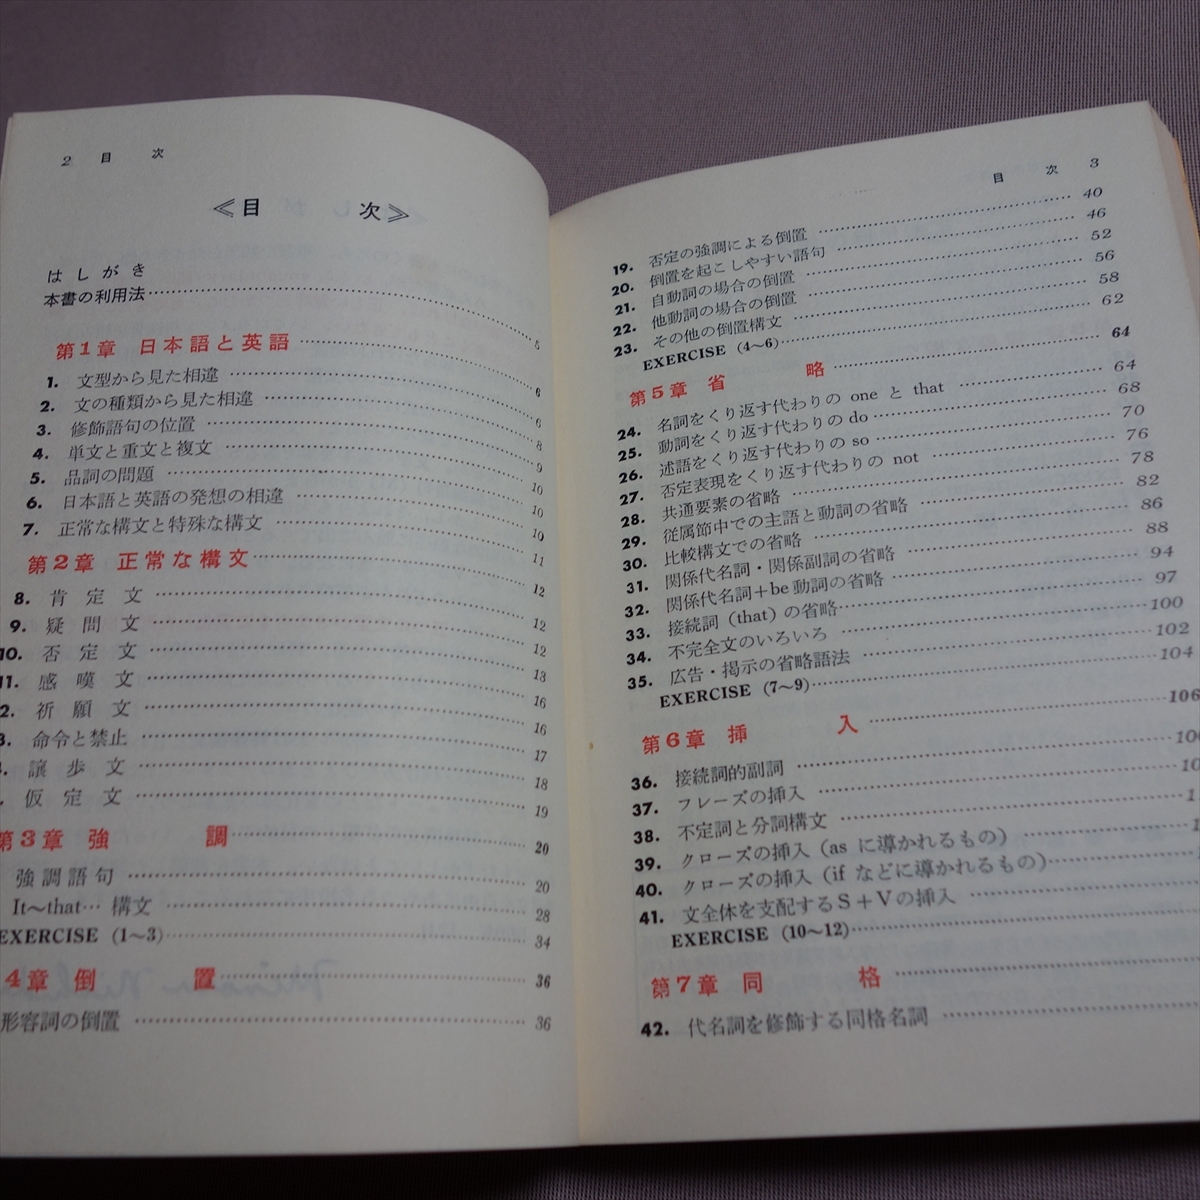 2 目 次
≪目 次≫
はしがき
本書の利用法 5
第1章 日本語と英語 6
1. 文型から見た相違 6
2. 文の種類から見た相違 8
3. 修飾語句の位置 9
4. 単文と重文と複文 10
5. 品詞の問題 10
6. 日本語と英語の発想の相違 10
7. 正常な構文と特殊な構文 11
第2章 正常な構文 12
8. 肯定文 12
9. 疑問文 12
10. 否定文 13
11. 感嘆文 16
2. 祈願文 16
3. 命令と禁止 17
譲歩文 18
仮定文 19
第3章 強調 20
強調語句 20
It~that… 構文 28
EXERCISE (1~3) 34
4章 倒置 36
形容詞の倒置 36
目 次 3
19. 否定の強調による倒置 40
20. 倒置を起こしやすい語句 46
21. 自動詞の場合の倒置 52
22. 他動詞の場合の倒置 56
23. その他の倒置構文 58
EXERCISE (4~6) 62
第5章 省略 64
24. 名詞をくり返す代わりの one と that 64
25. 動詞をくり返す代わりの do 68
26. 述語をくり返す代わりの so 70
27. 否定表現をくり返す代わりの not 76
28. 共通要素の省略 78
29. 従属節中での主語と動詞の省略 82
30. 比較構文での省略 86
31. 関係代名詞・関係副詞の省略 88
32. 関係代名詞+be動詞の省略 94
33. 接続詞 (that) の省略 97
34. 不完全文のいろいろ 100
35. 広告・掲示の省略語法 102
EXERCISE (7~9) 104
第6章 挿入 106
36. 接続詞的副詞 106
37. フレーズの挿入
38. 不定詞と分詞構文
39. クローズの挿入 (as に導かれるもの)
40. クローズの挿入 (if などに導かれるもの)
41. 文全体を支配するS+Vの挿入
EXERCISE (10~12)
第7章 同格
42. 代名詞を修飾する同格名詞